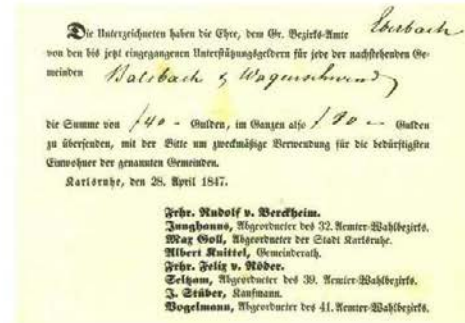 Die Unterzeichneten haben die Ehre, dem Gr. Bezirks-Amte Eberbach
von den bis jetzt eingegangenen Unterstützungsgeldern für jede der nachstehenden Ge-
meinden Balsbach & Wagenschwend
die Summe von f 40 - Gulden, im Ganzen also f 80 - Gulden
zu übersenden, mit der Bitte um zweckmäßige Verwendung für die bedürftigsten
Einwohner der genannten Gemeinden.
Karlsruhe, den 28. April 1847.
Frhr. Rudolf v. Berckheim.
Junghanns, Abgeordneter des 32. Aemter-Wahlbezirks.
Max Goll, Abgeordneter der Stadt Karlsruhe.
Albert Knittel, Gemeinderath.
Frhr. Felix v. Röder.
Seltzam, Abgeordneter des 39. Aemter-Wahlbezirks.
J. Stüber, Kaufmann.
Vogelmann, Abgeordneter des 41. Aemter-Wahlbezirks.